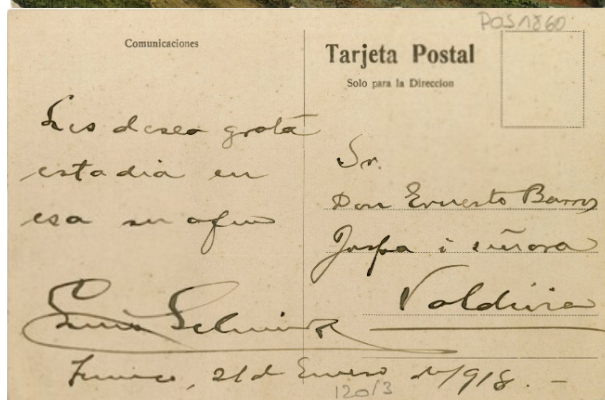 POS1860
Comunicaciones
Tarjeta Postal
Solo para la Direccion
Les deseo grata
estadia en
esa su afmo
Sr.
Don Ernesto Barros
Jarpa i señora
Valdivia
Temuco, 21 de Enero de 1918. -
120/3